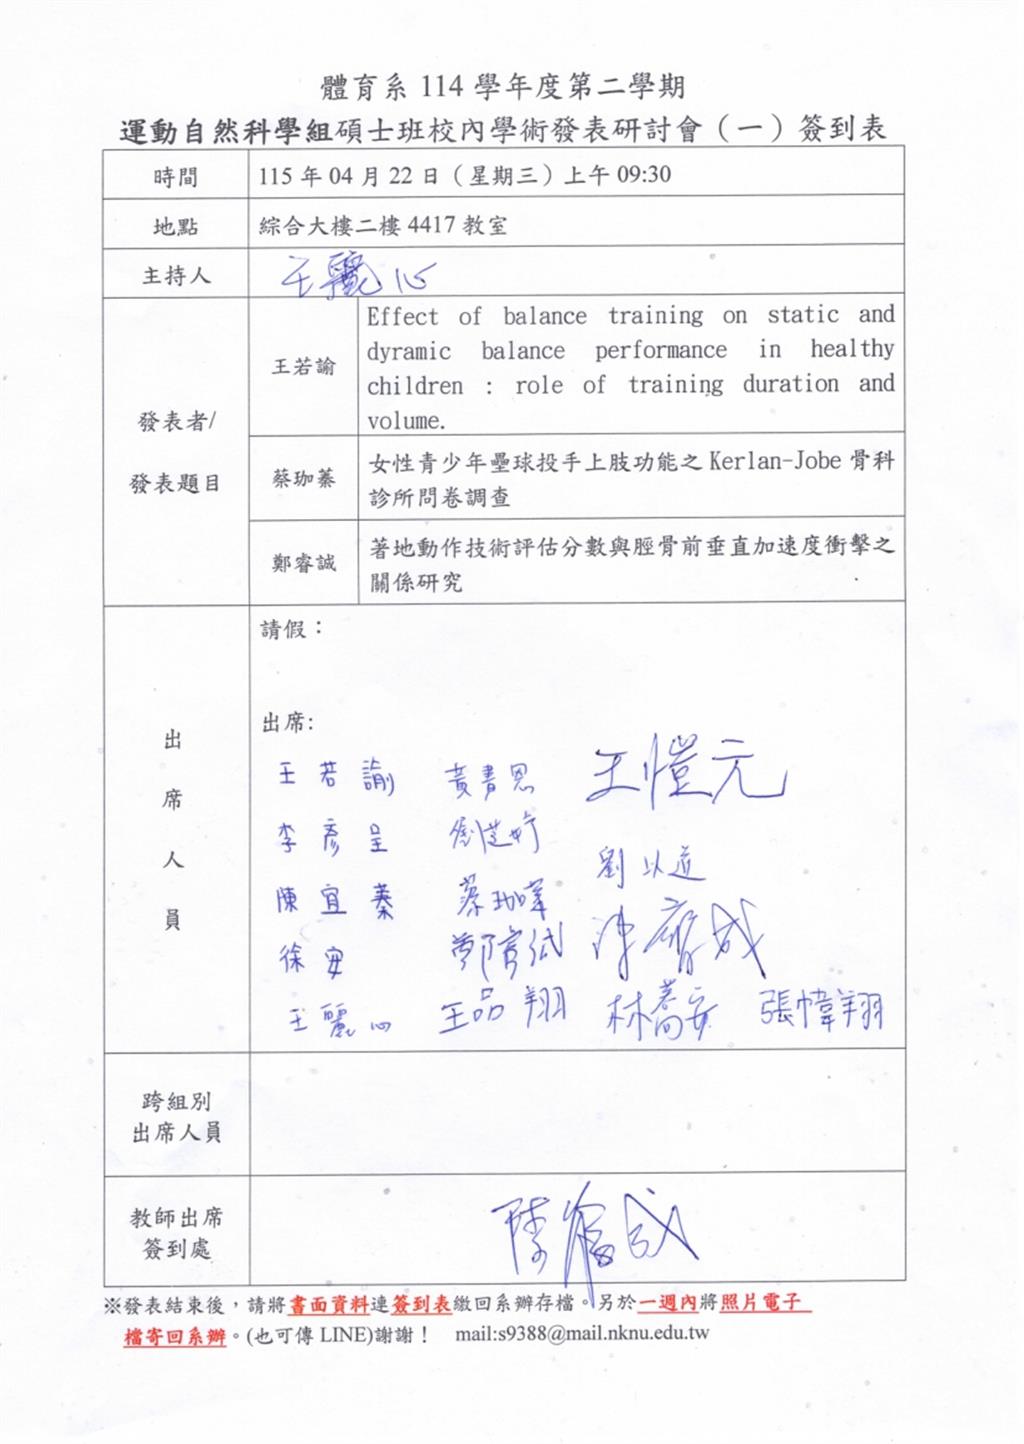 體育系 114 學年度第二學期
運動自然科學組碩士班校內學術發表研討會（一）簽到表
時間
115 年 04 月 22 日（星期三）上午 09:30
地點
綜合大樓二樓 4417 教室
主持人
王麗心
發表者/
發表題目
王若諭
Effect of balance training on static and
dyramic balance performance in healthy
children : role of training duration and
volume.
蔡珈蓁
女性青少年壘球投手上肢功能之 Kerlan-Jobe 骨科
診所問卷調查
鄭睿誠
著地動作技術評估分數與脛骨前垂直加速度衝擊之
關係研究
出席人員
請假：
出席:
王若諭 王愷元
李彥呈
劉以道
陳宜蓁
徐安
王麗心 王品翔 林喬安 張幃翔
跨組別
出席人員
教師出席
簽到處
※發表結束後，請將書面資料連簽到表繳回系辦存檔。另於一週內將照片電子
檔寄回系辦。(也可傳 LINE)謝謝！ mail:s9388@mail.nknu.edu.tw